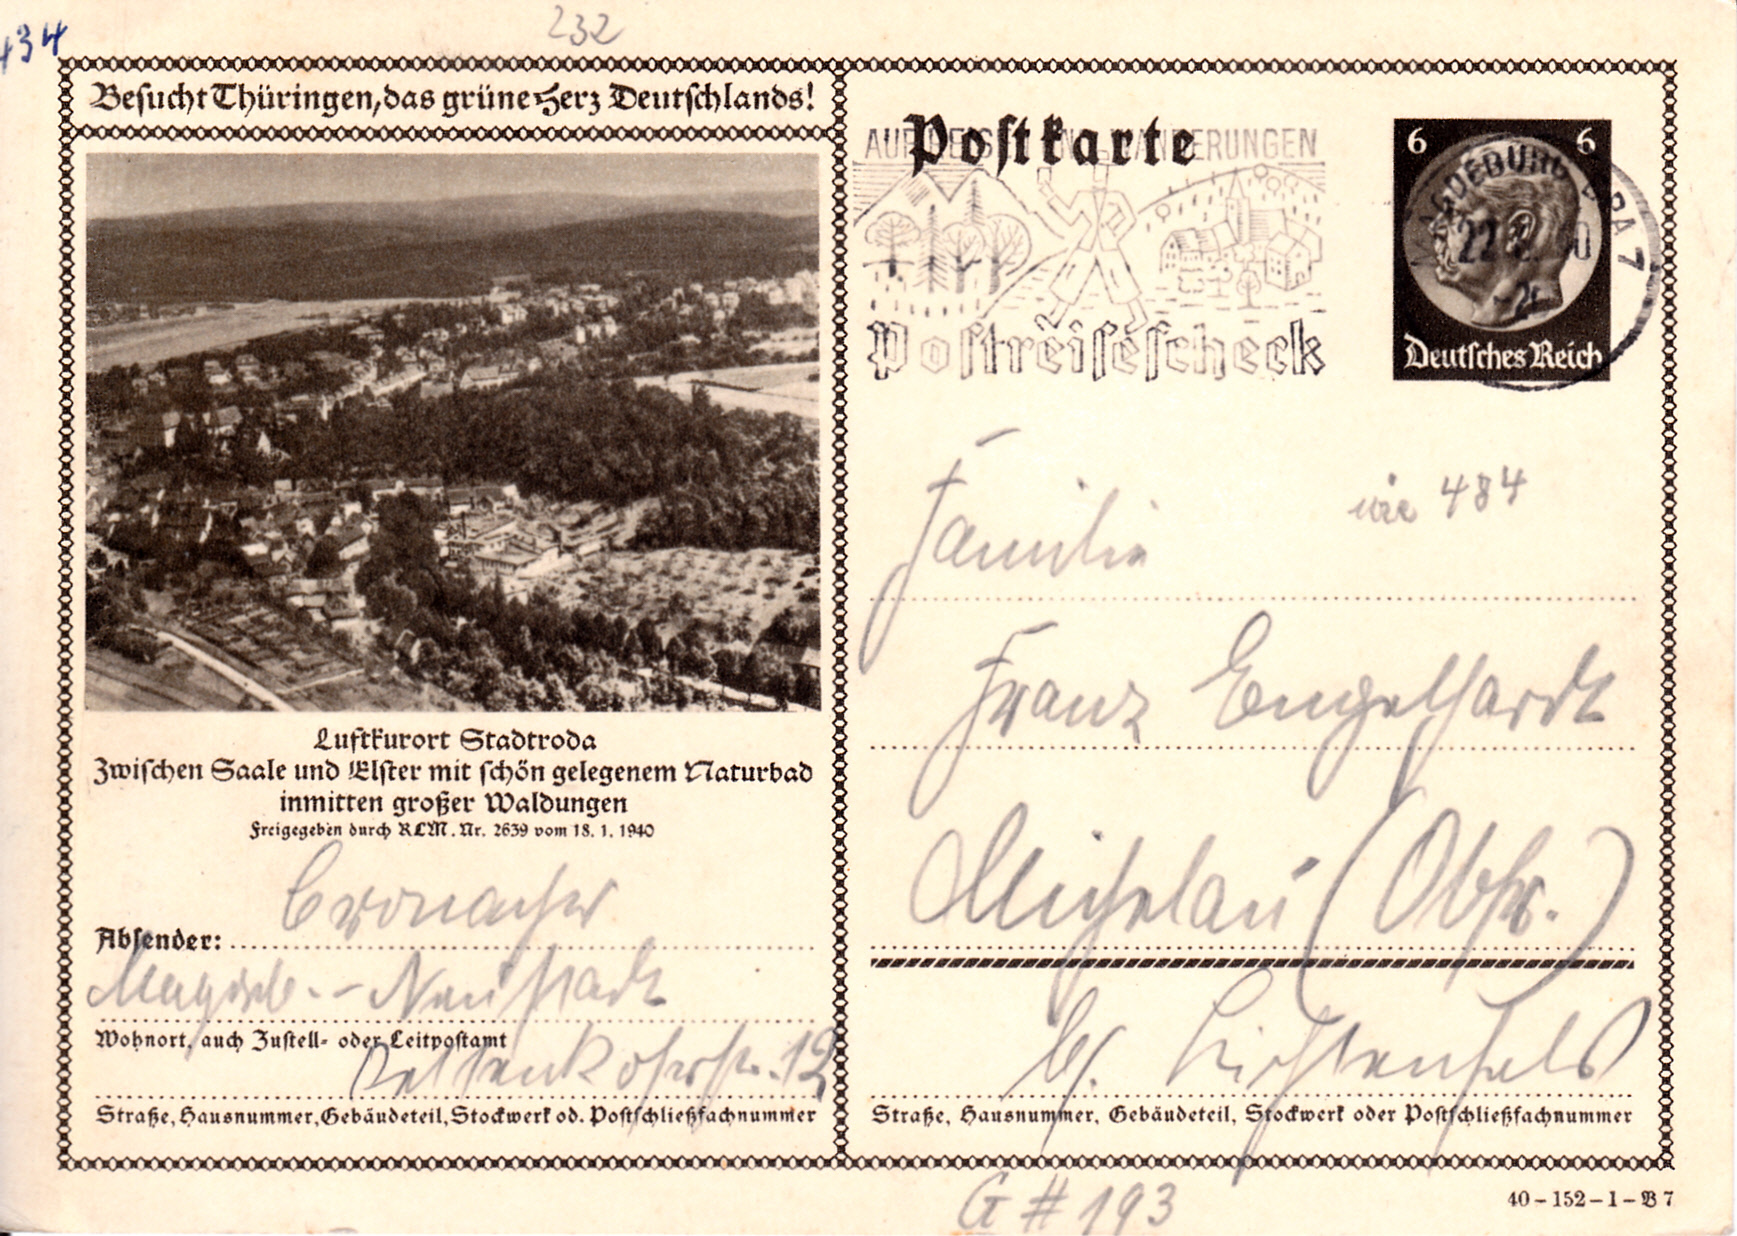 434
232
Besucht Thüringen, das grüne Herz Deutschlands!
Postkarte
AUF REISEN WANDERUNGEN
Postreisescheck
6 6
MAGDEBURG BPA 7
22 40
Deutsches Reich
wie 484
Familie
Franz Engelhardt
Michelau (Obfr.)
b/ Lichtenfels
Straße, Hausnummer, Gebäudeteil, Stockwerk oder Postschließfachnummer
Luftkurort Stadtroda
Zwischen Saale und Elster mit schön gelegenem Naturbad
inmitten großer Waldungen
Freigegeben durch RLM. Nr. 2639 vom 18. 1. 1940
Cronacher
Absender:
Magdeb.-Neustadt
Wohnort, auch Zustell- oder Leitpostamt
Pettenkoferstr. 12
Straße, Hausnummer, Gebäudeteil, Stockwerk od. Postschließfachnummer
G # 193
40-152-1-B 7